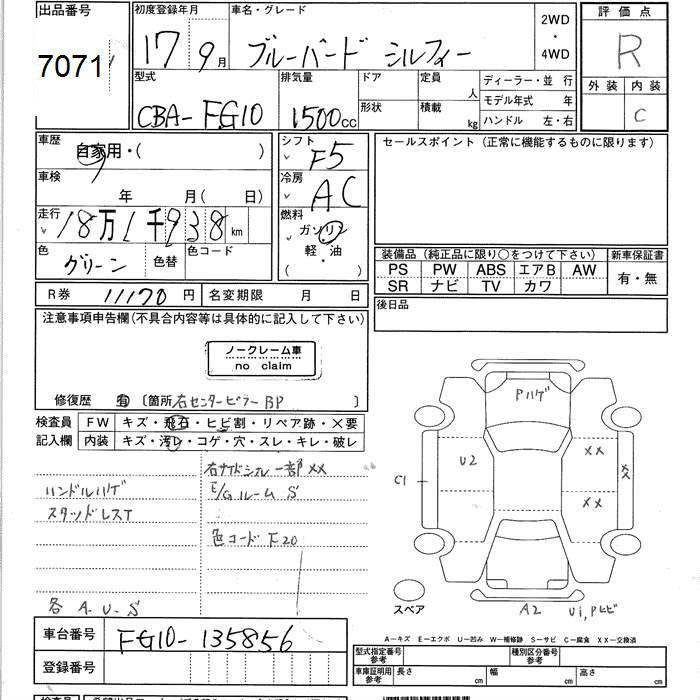 出品番号 初度登録年月 車名・グレード 2WD ・ 4WD 評価点
7071 17 9月 ブルーバード シルフィー R
型式 排気量 ドア 定員 人 ディーラー・並 行 外装 内装
CBA-FG10 1500cc 形状 積載 kg モデル年式 年 C
ハンドル 左・右
車歴 自家用・( ) シフト F5 セールスポイント(正常に機能するものに限ります)
車検 年 月(日) 冷房 AC
走行 18万1千938km 燃料 ガソリン
色 グリーン 色替 色コード 軽・油 ( )
装備品(純正品に限り○をつけて下さい) 新車保証書
PS PW ABS エアB AW 有・無
SR ナビ TV カワ
R券 11170円 名変期限 月 日 後日品
注意事項申告欄(不具合内容等は具体的に記入して下さい)
ノークレーム車
no claim
修復歴 有 〔箇所 右センターピラー BP
検査員 FW キズ・飛石・ヒビ割・リペア跡・X要
記入欄 内装 キズ・汚レ・コゲ・穴・スレ・キレ・破レ
右サイドシル一部XX
ハンドルハゲ E/Gルーム S
スタッドレスT
色コード F20
各 A.U.S
Pハゲ
U2 XX
C1 XX
XX
スペア A2 U1,Pヒビ
A-キズ E-エクボ U-凹み W-補修跡 S-サビ C-腐食 XX-交換済
車台番号 FG10-135856
登録番号
型式指定番号 参考 種別区分番号 参考
車庫証明用 参考 長さ cm 幅 cm 高さ cm